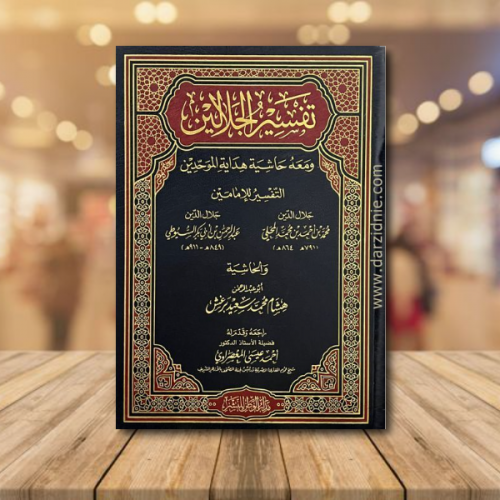 تفسير الجلالين
ومعه حاشية هداية الموحدين
التفسير للإمامين
جلال الدين
محمد بن أحمد بن محمد المحلي
(٧٩١ - ٨٦٤ هـ)
جلال الدين
عبد الرحمن بن أبي بكر السيوطي
(٨٤٩ هـ - ٩١١ هـ)
والحاشية
أبو عبد الرحمن
هشام محمد سعيد برغش
راجعه وقدم له
فضيلة الأستاذ الدكتور
أحمد عيسى المعصراوي
www.darzidnie.com